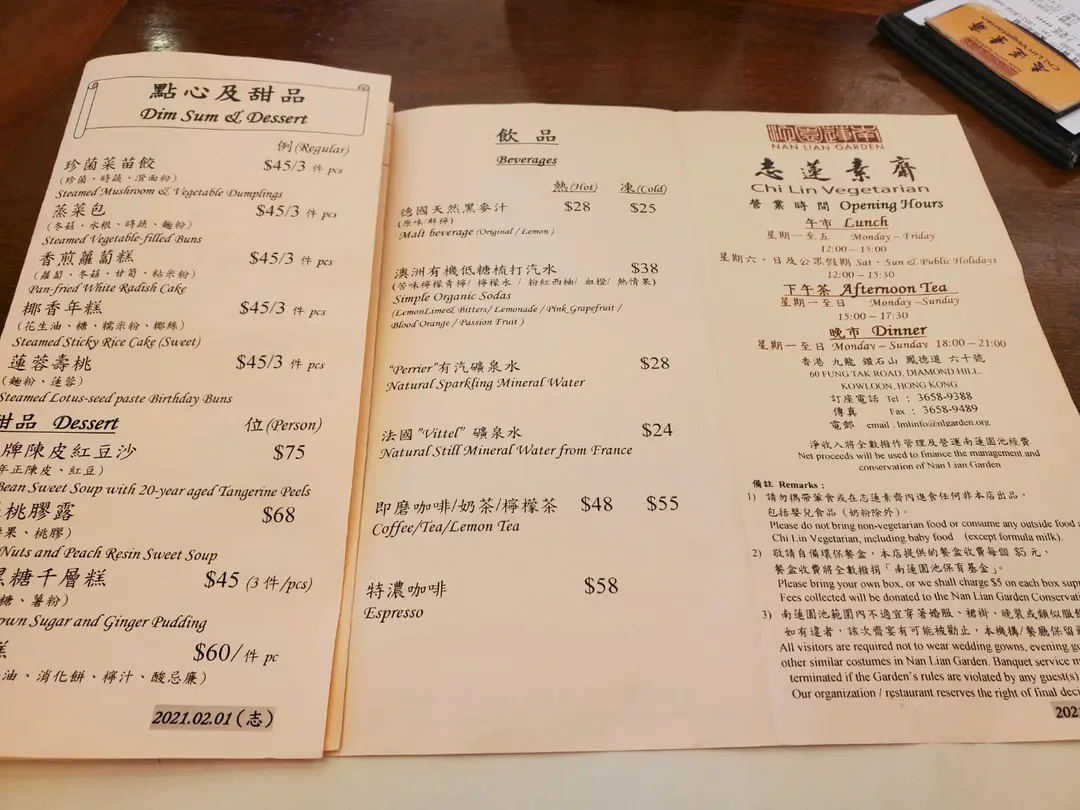 點心及甜品
Dim Sum & Dessert
例 (Regular)
珍菌菜苗餃 $45/3 件 pcs
(珍菌、時蔬、澄面粉)
Steamed Mushroom & Vegetable Dumplings
蒸菜包 $45/3 件 pcs
(冬菇、水根、時蔬、麵粉)
Steamed Vegetable-filled Buns
香煎蘿蔔糕 $45/3 件 pcs
(蘿蔔、冬菇、甘筍、粘米粉)
Pan-fried White Radish Cake
椰香年糕 $45/3 件 pcs
(花生油、糖、糯米粉、椰絲)
Steamed Sticky Rice Cake (Sweet)
蓮蓉壽桃 $45/3 件 pcs
(麵粉、蓮蓉)
Steamed Lotus-seed paste Birthday Buns
甜品 Dessert 位 (Person)
牌陳皮紅豆沙 $75
年正陳皮、紅豆)
Bean Sweet Soup with 20-year aged Tangerine Peels
桃膠露 $68
果、桃膠)
Nuts and Peach Resin Sweet Soup
黑糖千層糕 $45 (3 件/pcs)
糖、薯粉)
own Sugar and Ginger Pudding
糕 $60/ 件 pc
油、消化餅、檸汁、酸忌廉)
2021.02.01 (志)
飲品
Beverages
熱 (Hot) 凍 (Cold)
德國天然黑麥汁 $28 $25
(原味/鮮檸)
Malt beverage (Original / Lemon )
澳洲有機低糖梳打汽水 $38
(苦味檸檬青檸/ 檸檬水 / 粉紅西柚/ 血橙/ 熱情果)
Simple Organic Sodas
(LemonLime& Bitters/ Lemonade / Pink Grapefruit /
Blood Orange / Passion Fruit )
“Perrier”有汽礦泉水 $28
Natural Sparkling Mineral Water
法國 “Vittel” 礦泉水 $24
Natural Still Mineral Water from France
即磨咖啡/奶茶/檸檬茶 $48 $55
Coffee/Tea/Lemon Tea
特濃咖啡 $58
Espresso
NAN LIAN GARDEN
志蓮素齋
Chi Lin Vegetarian
營業時間 Opening Hours
午市 Lunch
星期一至五 Monday – Friday
12:00 – 15:00
星期六、日及公眾假期 Sat、Sun & Public Holidays
12:00 – 15:30
下午茶 Afternoon Tea
星期一至日 Monday –Sunday
15:00 – 17:30
晚市 Dinner
星期一至日 Monday – Sunday 18:00 – 21:00
香港 九龍 鑽石山 鳳德道 六十號
60 FUNG TAK ROAD, DIAMOND HILL,
KOWLOON, HONG KONG
訂座電話 Tel : 3658-9388
傳真 Fax : 3658-9489
電郵 email : lmlinfo@nlgarden.org
淨收入將全數撥作管理及營運南蓮園池經費
Net proceeds will be used to finance the management and
conservation of Nan Lian Garden
備註 Remarks :
1) 請勿攜帶葷食或在志蓮素齋內進食任何非本店出品，
包括嬰兒食品 (奶粉除外)。
Please do not bring non-vegetarian food or consume any outside food
Chi Lin Vegetarian, including baby food (except formula milk).
2) 敬請自備環保餐盒，本店提供的餐盒收費每個 $5 元，
餐盒收費將全數撥捐「南蓮園池保育基金」。
Please bring your own box, or we shall charge $5 on each box
Fees collected will be donated to the Nan Lian Garden
3) 南蓮園池範圍內不適宜穿著婚服、裙褂、晚裝或類似服
如有違者，該次齋宴有可能被勸止，本機構/餐廳保留
All visitors are required not to wear wedding gowns, evening
other similar costumes in Nan Lian Garden. Banquet service
terminated if the Garden's rules are violated by any guest(s)
Our organization / restaurant reserves the right of final
202
志蓮素齋
Chi Lin Vegetarian